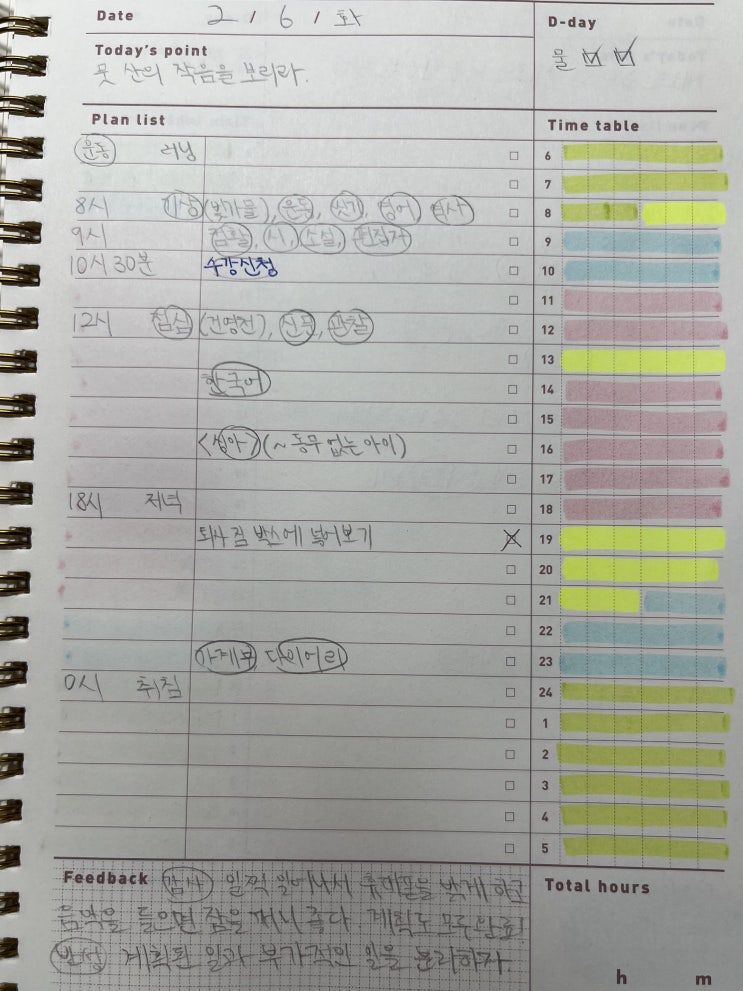 Date 2 / 6 / 화
D-day
물
Today's point
뭇 산의 작음을 보리라.
Plan list
Time table
운동 러닝
6
7
8시 기상 (빛가물), 운동, 씻기, 영어, 역사
8
9시 집활, 시, 소설, 편집자
9
10시 30분 수강신청
10
11
12시 점심 (건영전), 신문, 관찰
12
13
한국어
14
15
<싱아> (~동무 없는 아이)
16
17
18시 저녁
18
퇴사 짐 박스에 넣어보기
19
20
21
22
가계부 다이어리
23
0시 취침
24
1
2
3
4
5
Feedback 감사 일찍 일어나서 휴대폰을 밝게 하고
음악을 들으면 잠을 깨니 좋다. 계획도 모두 완료!
반성 계획된 일과 부가적인 일을 분리하자.
Total hours
h m